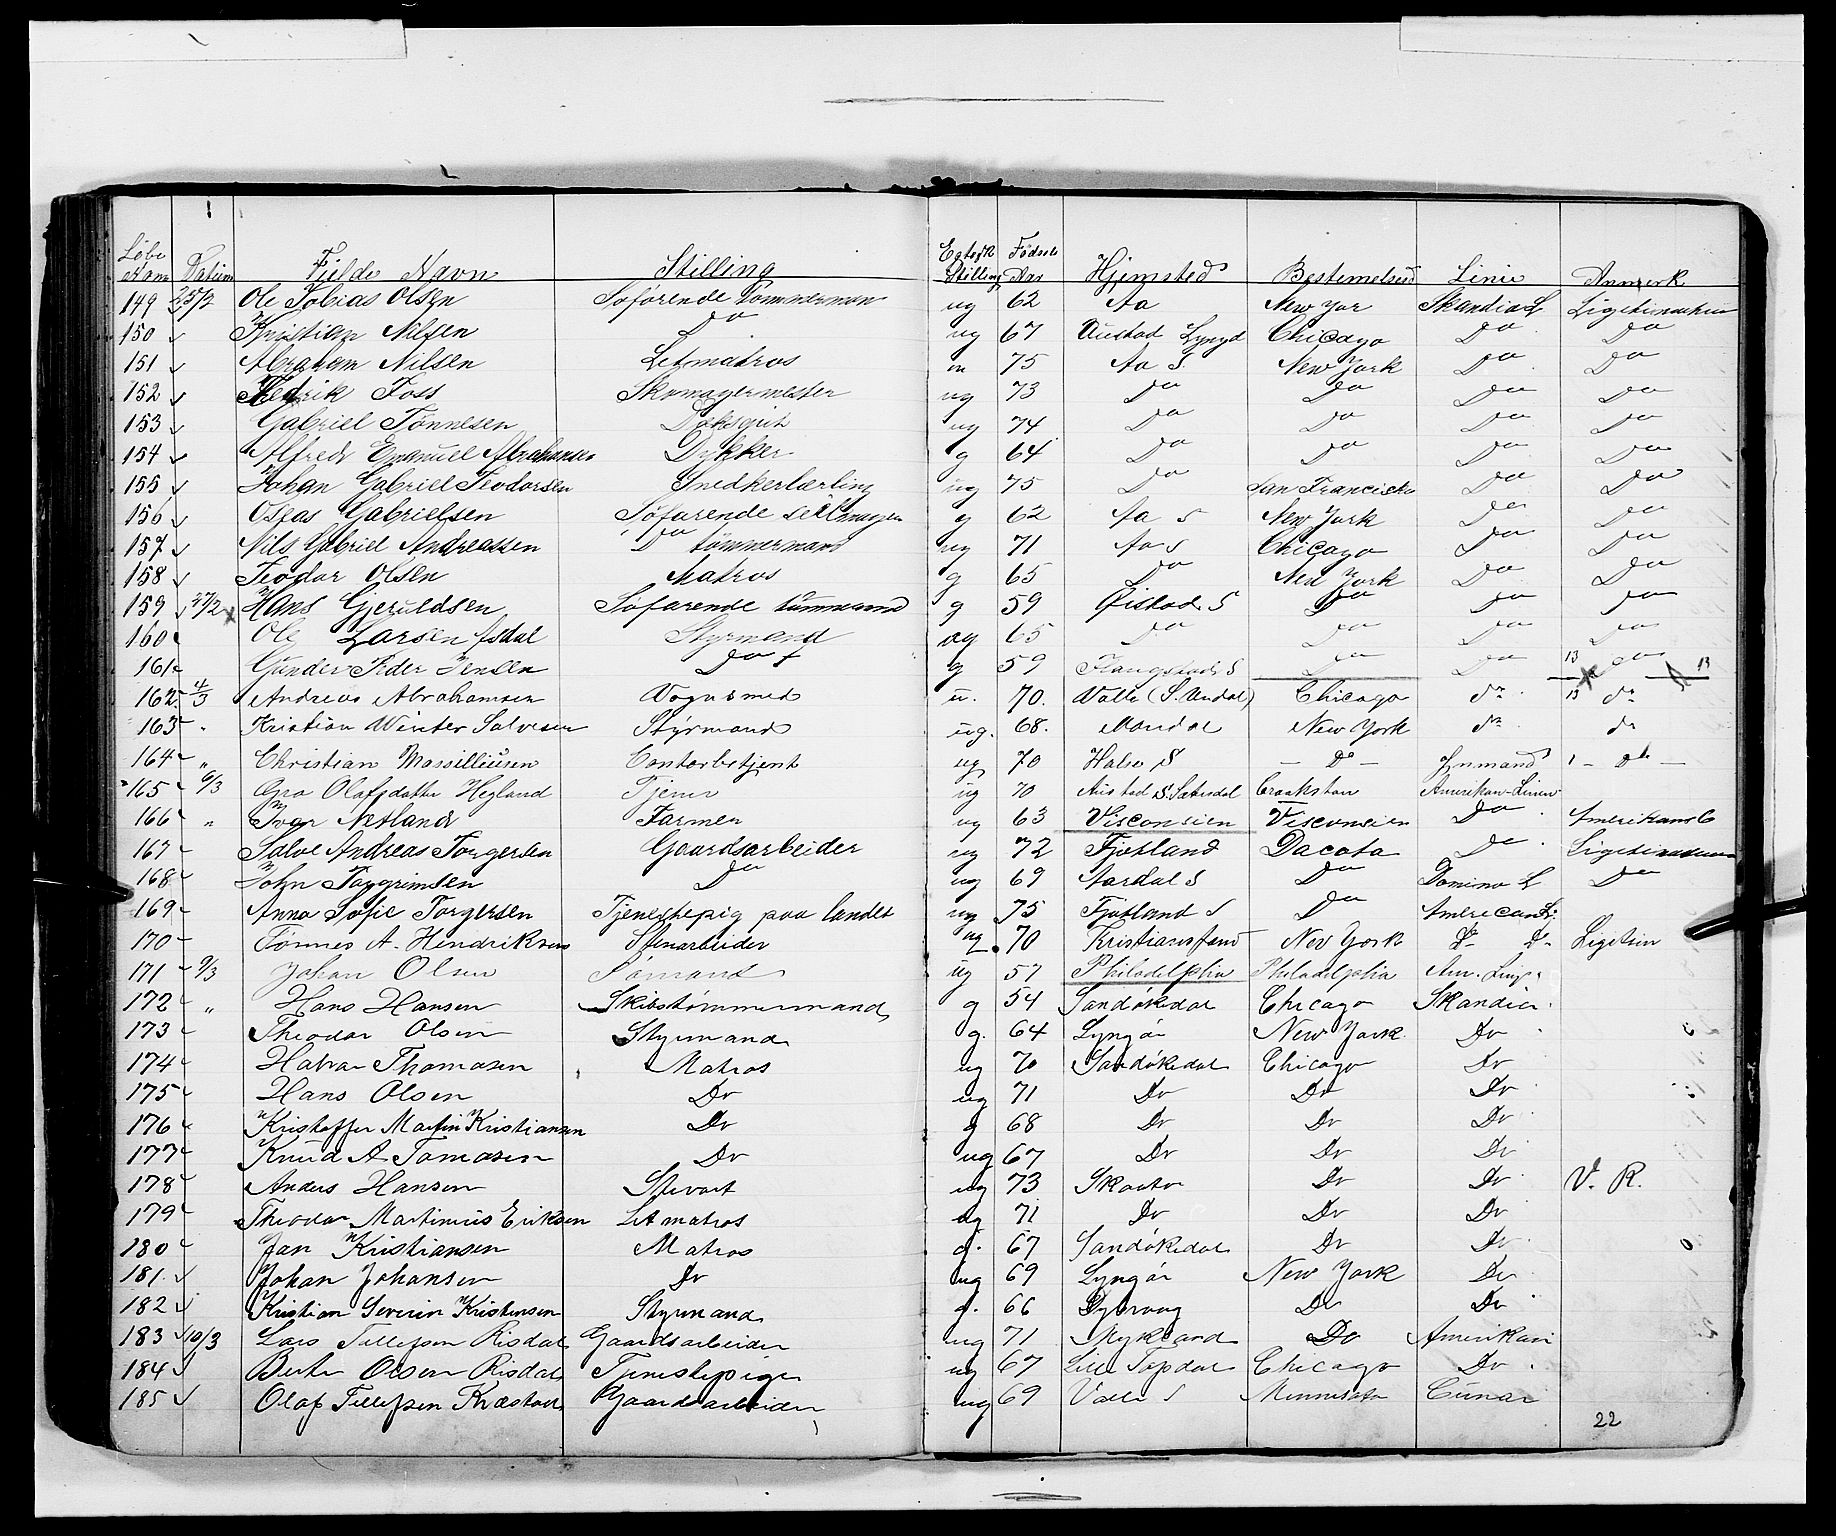 Løbe Nom Datum Fulde Navn Stilling Egtesk Stilling Fødsels Aar Hjemsted Bestemelsesd Linie Anmerk
149 25/2 Ole Tobias Olsen Søfarende Tømmermon ug 62 Aa New Yor Skandia L
150 Kristian Nilsen Do ug 67 Austad Lyngd Chicago Do Do
151 Abraham Nilsen Letmatros 75 Aa S New York Do Do
152 Fredrik Foss Skomagermester ug 73 Do Do Do Do
153 Gabriel Tønnesen ug 74 Do Do Do Do
154 Alfred Emanuel Abrahamsen Dykker g 64 Do Do Do Do
155 Johan Gabriel Teodorsen Snedkerlærling ug 75 Do San Francisko Do Do
156 Oseas Gabrielsen Søfarende Seilmager g 62 Aa S New York Do Do
157 Nils Gabriel Andreassen Do tømmermand ug 71 Aa S Chicago Do Do
158 Teodor Olsen Matros g 65 Do New York Do Do
159 27/2 Hans Gjeruldsen Søfarende tømmermand g 59 Øistad S Do Do Do
160 Ole Larsen Asdal Styrmand ug 65 Do Do Do Do
161 Gunder Peder Jensen Do g 59 Do Do 13 Do 13
162 4/3 Andreas Abrahamsen Vognsmed u. 70. Valle (S. Undal) Chicago do 13 do
163 Kristian Winter Salvesen Styrmand ug. 68. Mandal New York do do
164 " Christian Massiliusen Contorbetjent ug 70 Halse S — Do — — Do —
165 6/3 Gro Olafsdatter Hegland Tjener ug 70 Austad S. Sætersdal Crookston Amerikan-Linien
166 " Iver Netland Farmer ug 63 Visconsien Visconsien Do
167 Salve Andreas Torgersen Gaardsarbeider ug 72 Fjotland Dacota Do
168 John Torgrimsen Do ug 69 Aardal S Do Domino L Do
169 Anna Sofie Torgersen Tjenestepig paa landet ug 75 Fjotland S Do American Li
170 Tønnes A. Hendriksen Stenarbeider ug 70 Kristiansand New York Do Do Ligitim
171 9/3 Johan Olsen Sømand ug 57 Philadelphia Philadelphia Am. Linje
172 " Hans Hansen Skibstømmermand g 54 Sandøkedal Chicago Skandia
173 Theodor Olsen Styrmand g. 64 Lyngør New York Do
174 Halvor Thomasen Matros ug 70 Sandøkedal Chicago Do
175 Hans Olsen Do ug 71 Do Do Do
176 Kristoffer Martin Kristiansen Do g 68 Do Do Do
177 Knud A Tomasen Do ug 67 Do Do Do
178 Anders Hansen Stevart ug 73 Skaatø Do Do V. R.
179 Theodor Martinius Eriksen Letmatros ug 71 Do Do Do
180 Jan Kristiansen Matros g. 67 Sandøkedal Do Do
181 Johan Johansen Do ug 69 Lyngør New York Do
182 Kristian Severin Kristensen Styrmand g. 66 Dybvaag Do Do
183 10/3 Lars Tellefsen Risdal Gaardsarbeider ug 71 Mykland Do Amerikan
184 Berte Olsen Risdal Tjenestepige ug 67 Lille Topdal Chicago Do
185 Olaf Tellefsen Gaardsarbeider ug 69 Valle S Minnisota Cunar
22